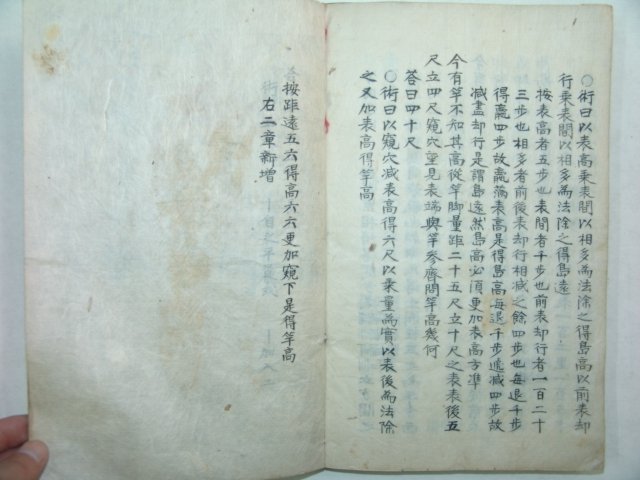 ○術曰以表高乘表間以相多為法除之得島高以前表却
行乘表間以相多為法除之得島遠
按表高者五步也表間者千步也前表却行者一百二十
三步也相多者前後表却行相减之餘四步也每退千步
得高四步故高表高是得島高每退千步遞减四步故
减盡却行是謂島遠然島高必須更加表高方準
今有竿不知其高從竿脚量距二十五尺立十尺之表表後五
尺立四尺窺穴望見表端與竿參齊問竿高幾何
答曰四十尺
○術曰以窺穴减表高得六尺以乘量為實以表後為法除
之又加表高得竿高
按距遠五六得高六六更加窺下是得竿高
右二章新增